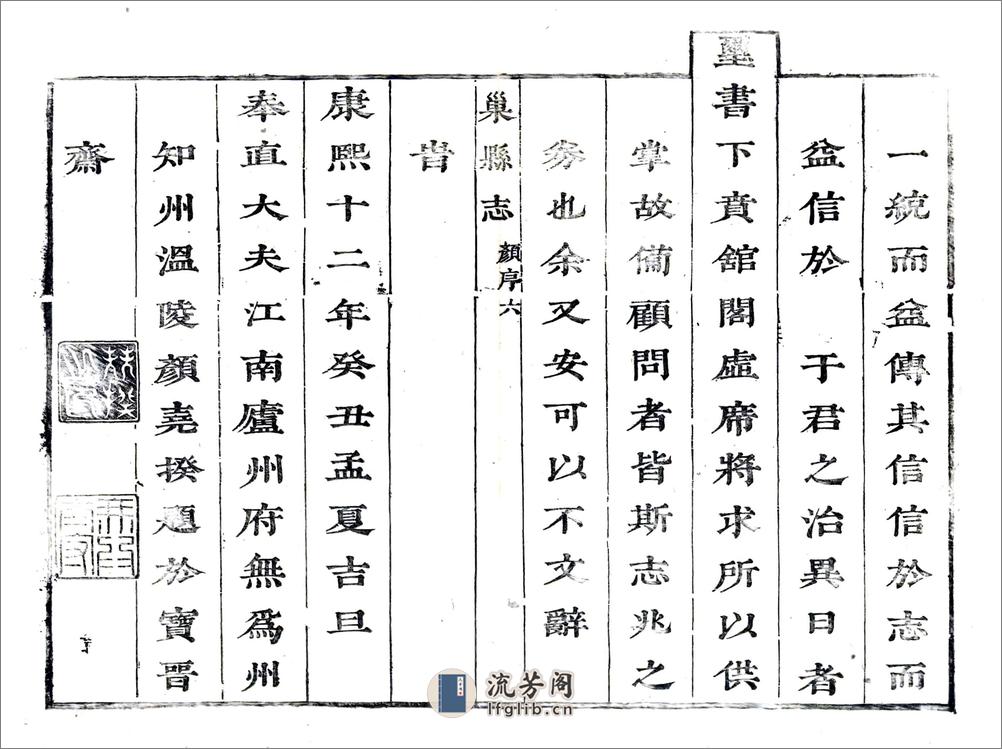 一統而益傳其信信於志而
益信於　于君之治異日者
璽書下賁舘閣虛席將求所以供
掌故備顧問者皆斯志兆之
劵也余又安可以不文辭
巢縣志
顏序
六
旹
康熙十二年癸丑孟夏吉旦
奉直大夫江南廬州府無爲州
知州溫陵顏堯揆題於寶晋
齋
流芳阁
lfglib.cn